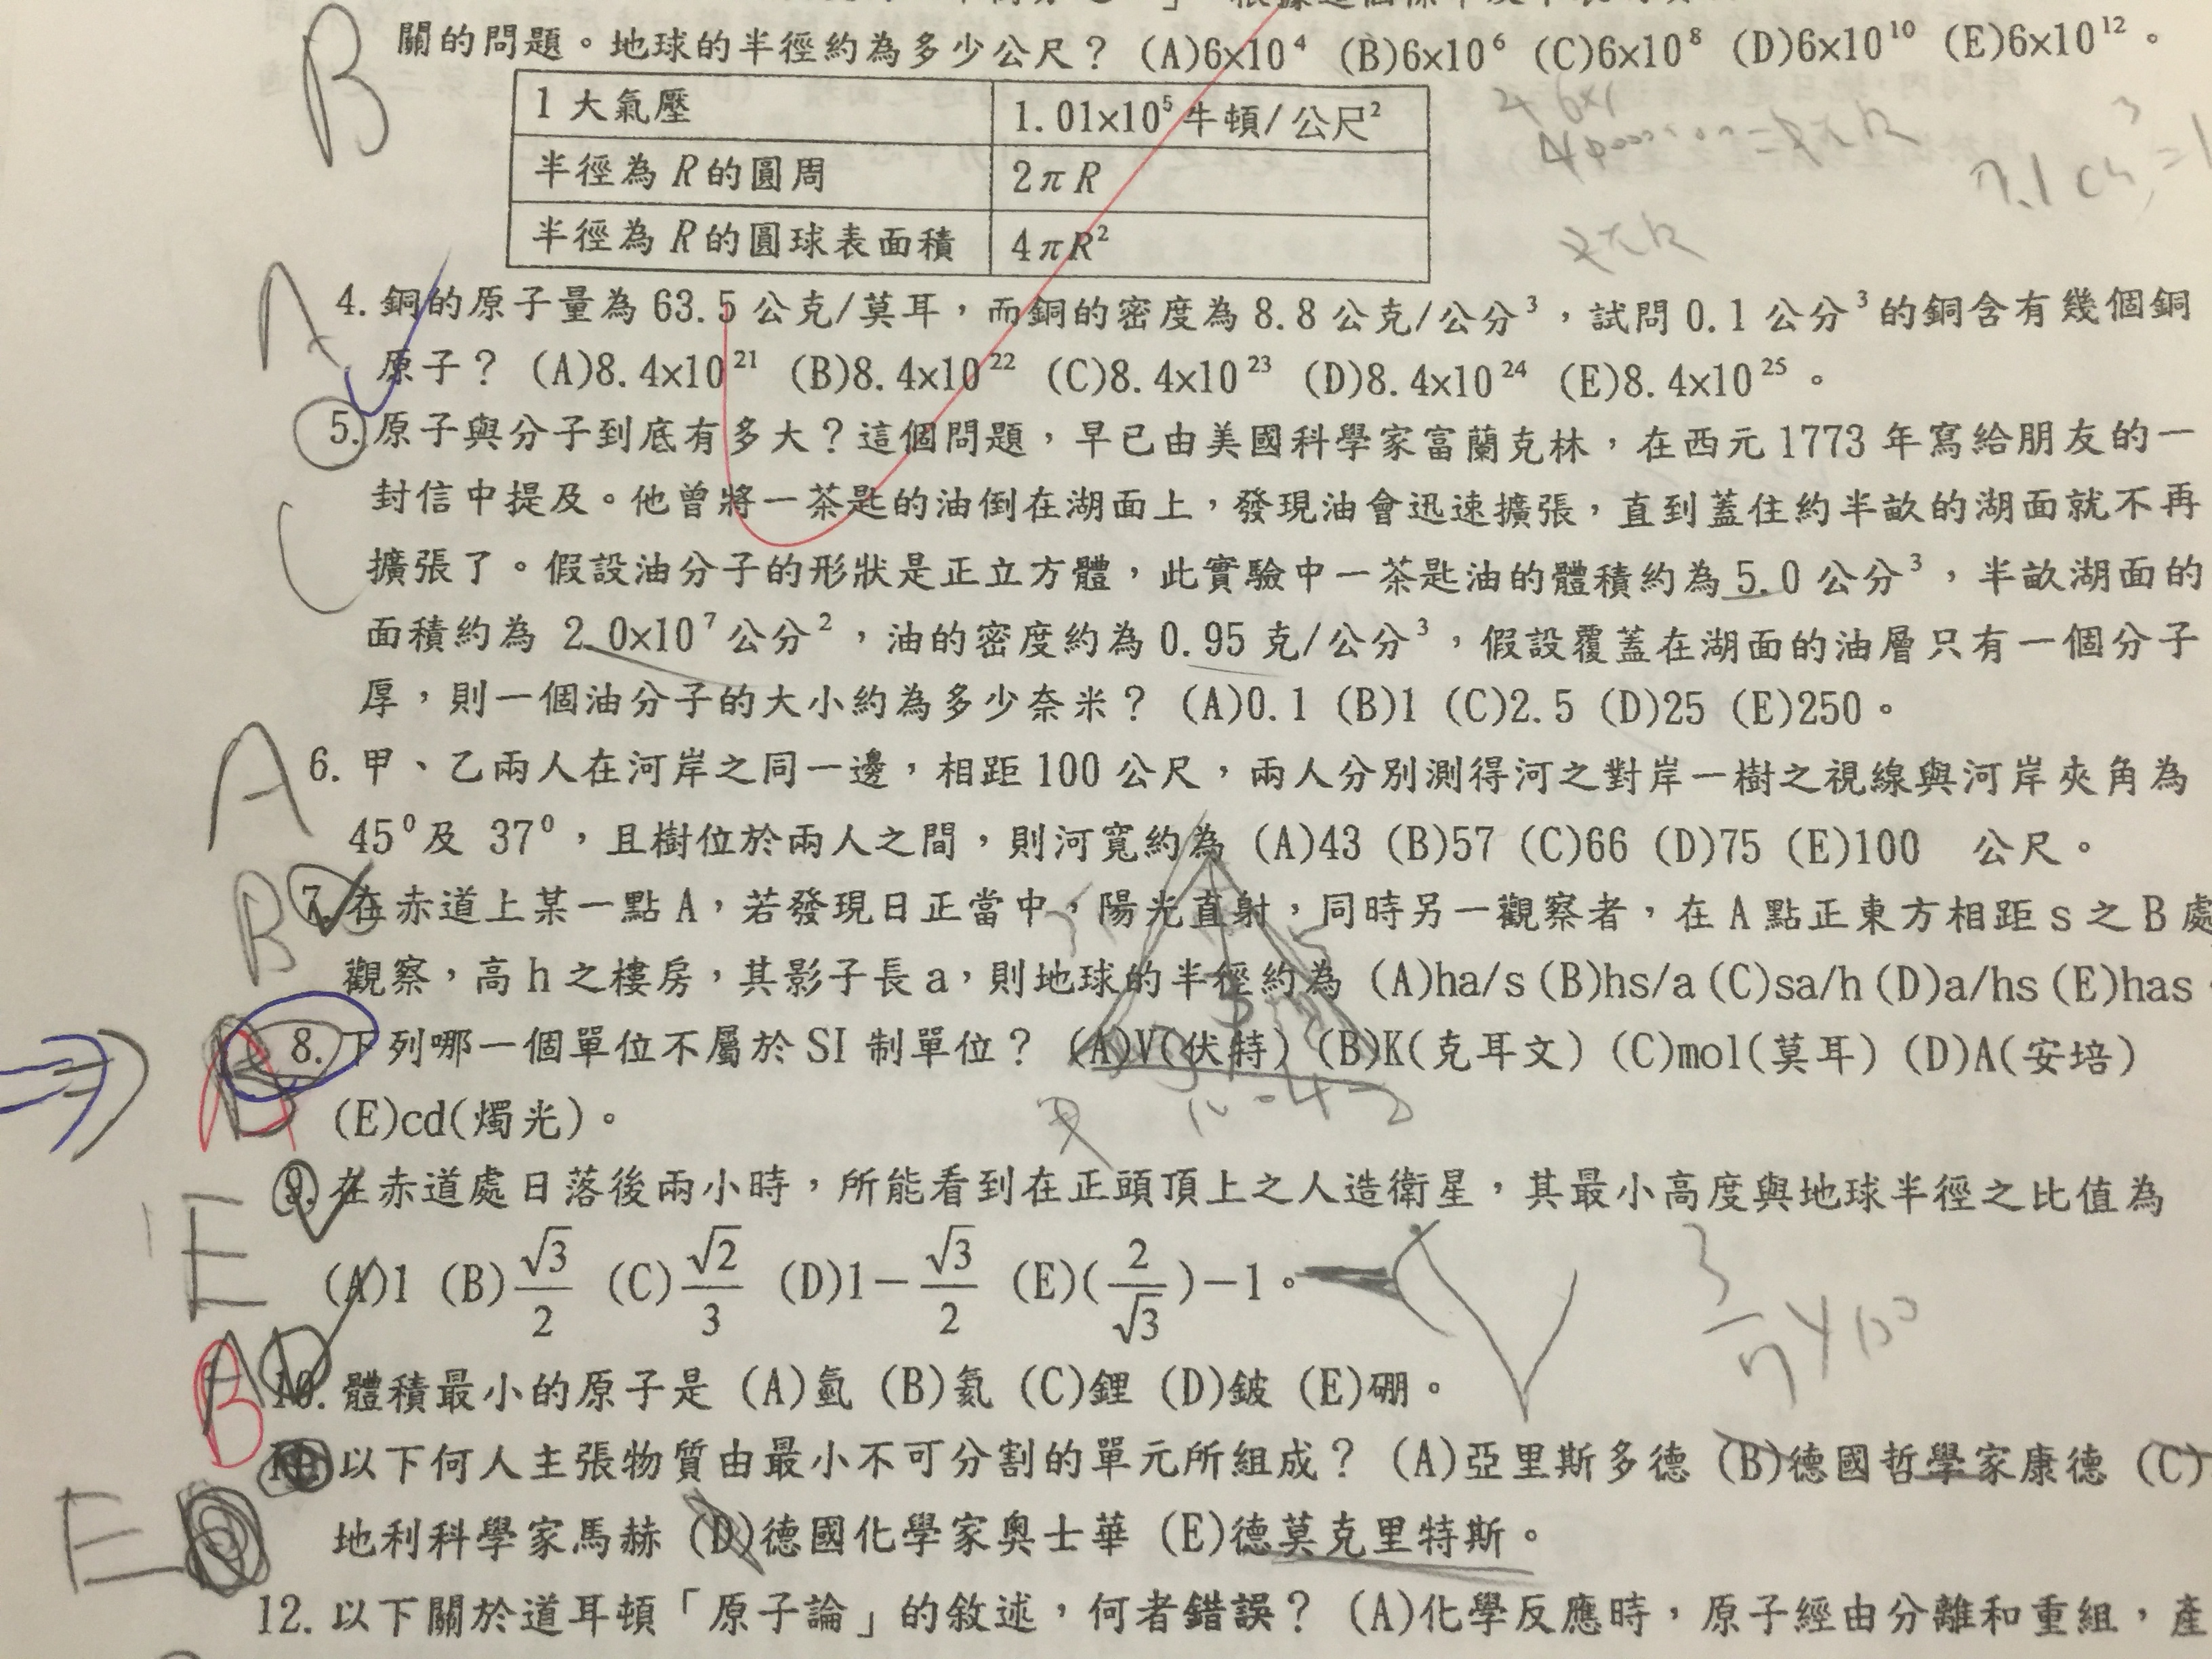 關的問題。地球的半徑約為多少公尺？ (A)6×10⁴ (B)6×10⁶ (C)6×10⁸ (D)6×10¹⁰ (E)6×10¹²。
B
1 大氣壓 1.01×10⁵ 牛頓/公尺²
半徑為 R 的圓周 2πR
半徑為 R 的圓球表面積 4πR²
2πR
A
4. 銅的原子量為 63.5 公克/莫耳，而銅的密度為 8.8 公克/公分³，試問 0.1 公分³的銅含有幾個銅
原子？ (A)8.4×10²¹ (B)8.4×10²² (C)8.4×10²³ (D)8.4×10²⁴ (E)8.4×10²⁵。
C
5. 原子與分子到底有多大？這個問題，早已由美國科學家富蘭克林，在西元 1773 年寫給朋友的一
封信中提及。他曾將一茶匙的油倒在湖面上，發現油會迅速擴張，直到蓋住約半畝的湖面就不再
擴張了。假設油分子的形狀是正立方體，此實驗中一茶匙油的體積約為 5.0 公分³，半畝湖面的
面積約為 2.0×10⁷公分²，油的密度約為 0.95 克/公分³，假設覆蓋在湖面的油層只有一個分子
厚，則一個油分子的大小約為多少奈米？ (A)0.1 (B)1 (C)2.5 (D)25 (E)250。
A
6. 甲、乙兩人在河岸之同一邊，相距 100 公尺，兩人分別測得河之對岸一樹之視線與河岸夾角為
45⁰及 37⁰，且樹位於兩人之間，則河寬約為 (A)43 (B)57 (C)66 (D)75 (E)100 公尺。
B
7. 在赤道上某一點 A，若發現日正當中，陽光直射，同時另一觀察者，在 A 點正東方相距 s 之 B 處
觀察，高 h 之樓房，其影子長 a，則地球的半徑約為 (A)ha/s (B)hs/a (C)sa/h (D)a/hs (E)has
A
8. 下列哪一個單位不屬於 SI 制單位？ (A)V(伏特) (B)K(克耳文) (C)mol(莫耳) (D)A(安培)
(E)cd(燭光)。
E
9. 在赤道處日落後兩小時，所能看到在正頭頂上之人造衛星，其最小高度與地球半徑之比值為
(A)1 (B)√3/2 (C)√2/3 (D)1−√3/2 (E)(2/√3)−1。
B
10. 體積最小的原子是 (A)氫 (B)氦 (C)鋰 (D)鈹 (E)硼。
11. 以下何人主張物質由最小不可分割的單元所組成？ (A)亞里斯多德 (B)德國哲學家康德 (C)
地利科學家馬赫 (D)德國化學家奧士華 (E)德莫克里特斯。
E
12. 以下關於道耳頓「原子論」的敘述，何者錯誤？ (A)化學反應時，原子經由分離和重組，產